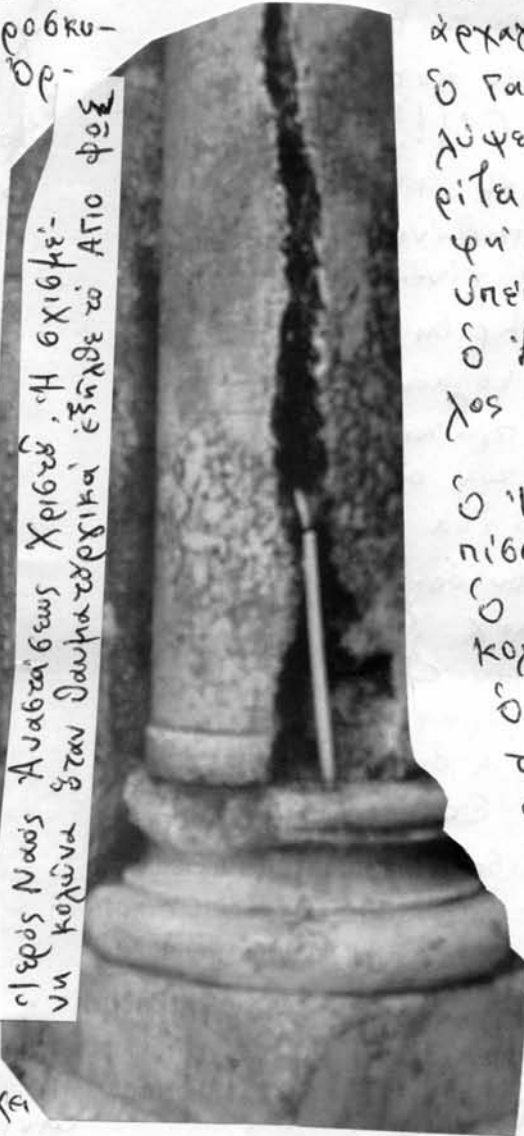 ροσκυ-
Ὀρ-
Ἱερὸς Ναὸς Ἀναστάσεως Χριστȣ̃, Ἡ σχισμέ-
νη κολώνα ὅταν θαυματȣργικά ἐξῆλθε τὸ Ἅγιο φῶς
ἀρχα
ὁ Γα
λύψε
ρίζει
φή
ὑπέ
ὁ
λος
ὁ
πίσ
ὁ
κολ
ὁ
ρ